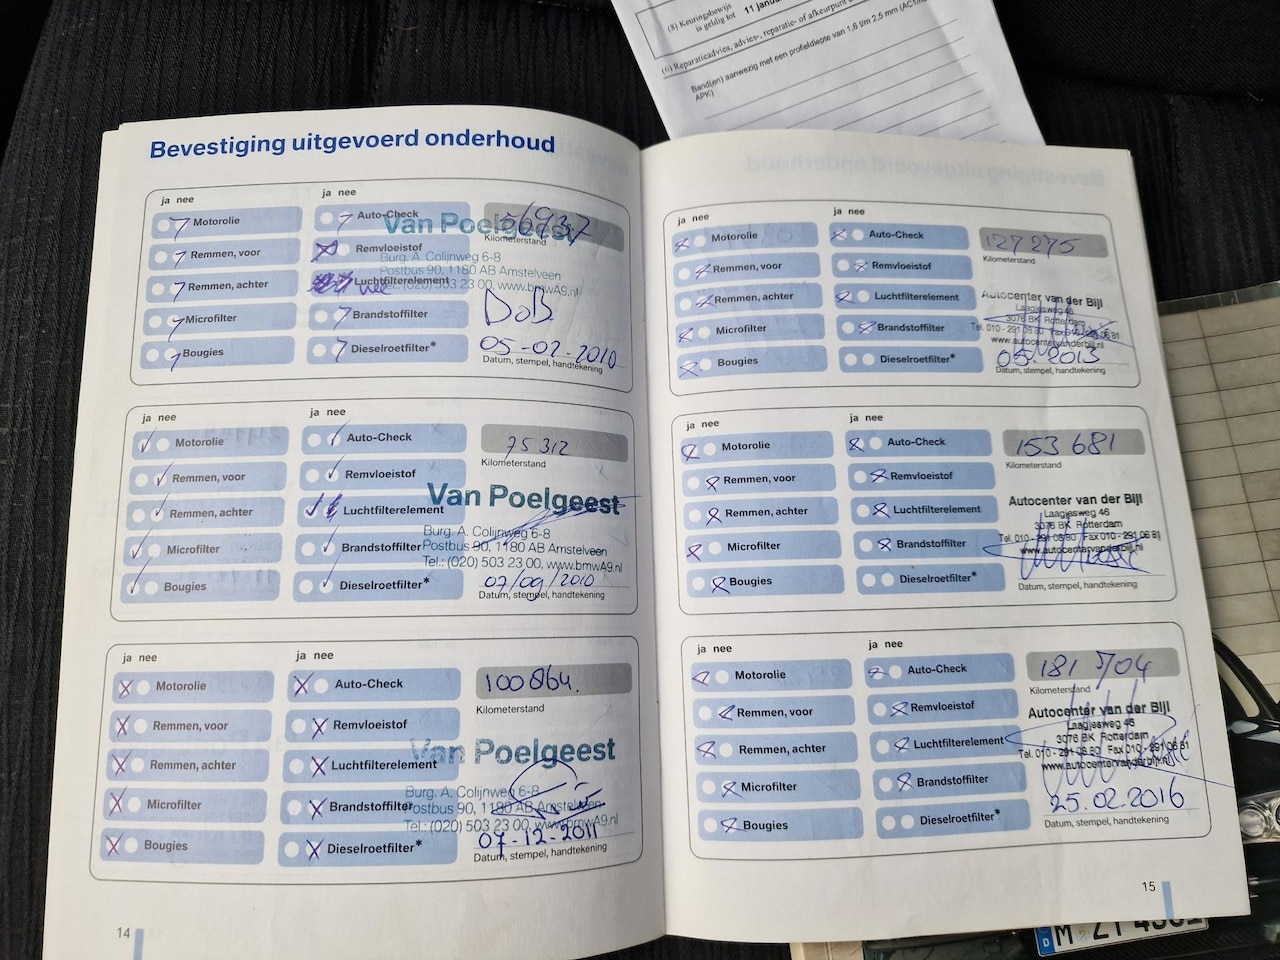 (8) Keuringsbewijs
is geldig tot 11
(6) Reparatieadvies, advies-, reparatie- of afkeurpunt
Band(en) aanwezig met een profieldiepte van 1,6 t/m 2,5 mm
APK)
Bevestiging uitgevoerd onderhoud
ja nee
ja nee
Motorolie
Auto-Check
Remmen, voor
Remvloeistof
Remmen, achter
Luchtfilterelement
nee
Microfilter
Brandstoffilter
Bougies
Dieselroetfilter*
56937
Kilometerstand
Van Poelgeest
Burg. A. Colijnweg 6-8
Postbus 90, 1180 AB Amstelveen
Tel.: (020) 503 23 00, www.bmwA9.nl
DoB
05-02-2010
Datum, stempel, handtekening
ja nee
ja nee
Motorolie
Auto-Check
Remmen, voor
Remvloeistof
Remmen, achter
Luchtfilterelement
Microfilter
Brandstoffilter
Bougies
Dieselroetfilter*
75 312
Kilometerstand
Van Poelgeest
Burg. A. Colijnweg 6-8
Postbus 90, 1180 AB Amstelveen
Tel.: (020) 503 23 00, www.bmwA9.nl
07/09/2010
Datum, stempel, handtekening
ja nee
ja nee
Motorolie
Auto-Check
Remmen, voor
Remvloeistof
Remmen, achter
Luchtfilterelement
Microfilter
Brandstoffilter
Bougies
Dieselroetfilter*
100864.
Kilometerstand
Van Poelgeest
Burg. A. Colijnweg 6-8
Postbus 90, 1180 AB Amstelveen
Tel.: (020) 503 23 00, www.bmwA9.nl
07-12-2011
Datum, stempel, handtekening
14
ja nee
ja nee
Motorolie
Auto-Check
Remmen, voor
Remvloeistof
Remmen, achter
Luchtfilterelement
Microfilter
Brandstoffilter
Bougies
Dieselroetfilter*
127 275
Kilometerstand
Autocenter van der Bijl
Laagjesweg 46
3076 BK Rotterdam
Tel. 010 - 291 06 80 Fax 010 - 291 06 81
www.autocentervanderbijl.nl
2013
Datum, stempel, handtekening
ja nee
ja nee
Motorolie
Auto-Check
Remmen, voor
Remvloeistof
Remmen, achter
Luchtfilterelement
Microfilter
Brandstoffilter
Bougies
Dieselroetfilter*
153 681
Kilometerstand
Autocenter van der Bijl
Laagjesweg 46
3076 BK Rotterdam
Tel. 010 - 291 06 80 Fax 010 - 291 06 81
www.autocentervanderbijl.nl
Datum, stempel, handtekening
ja nee
ja nee
Motorolie
Auto-Check
Remmen, voor
Remvloeistof
Remmen, achter
Luchtfilterelement
Microfilter
Brandstoffilter
Bougies
Dieselroetfilter*
181 704
Kilometerstand
Autocenter van der Bijl
Laagjesweg 46
3076 BK Rotterdam
Tel. 010 - 291 06 80 Fax 010 - 291 06 81
www.autocentervanderbijl.nl
25.02.2016
Datum, stempel, handtekening
15
D